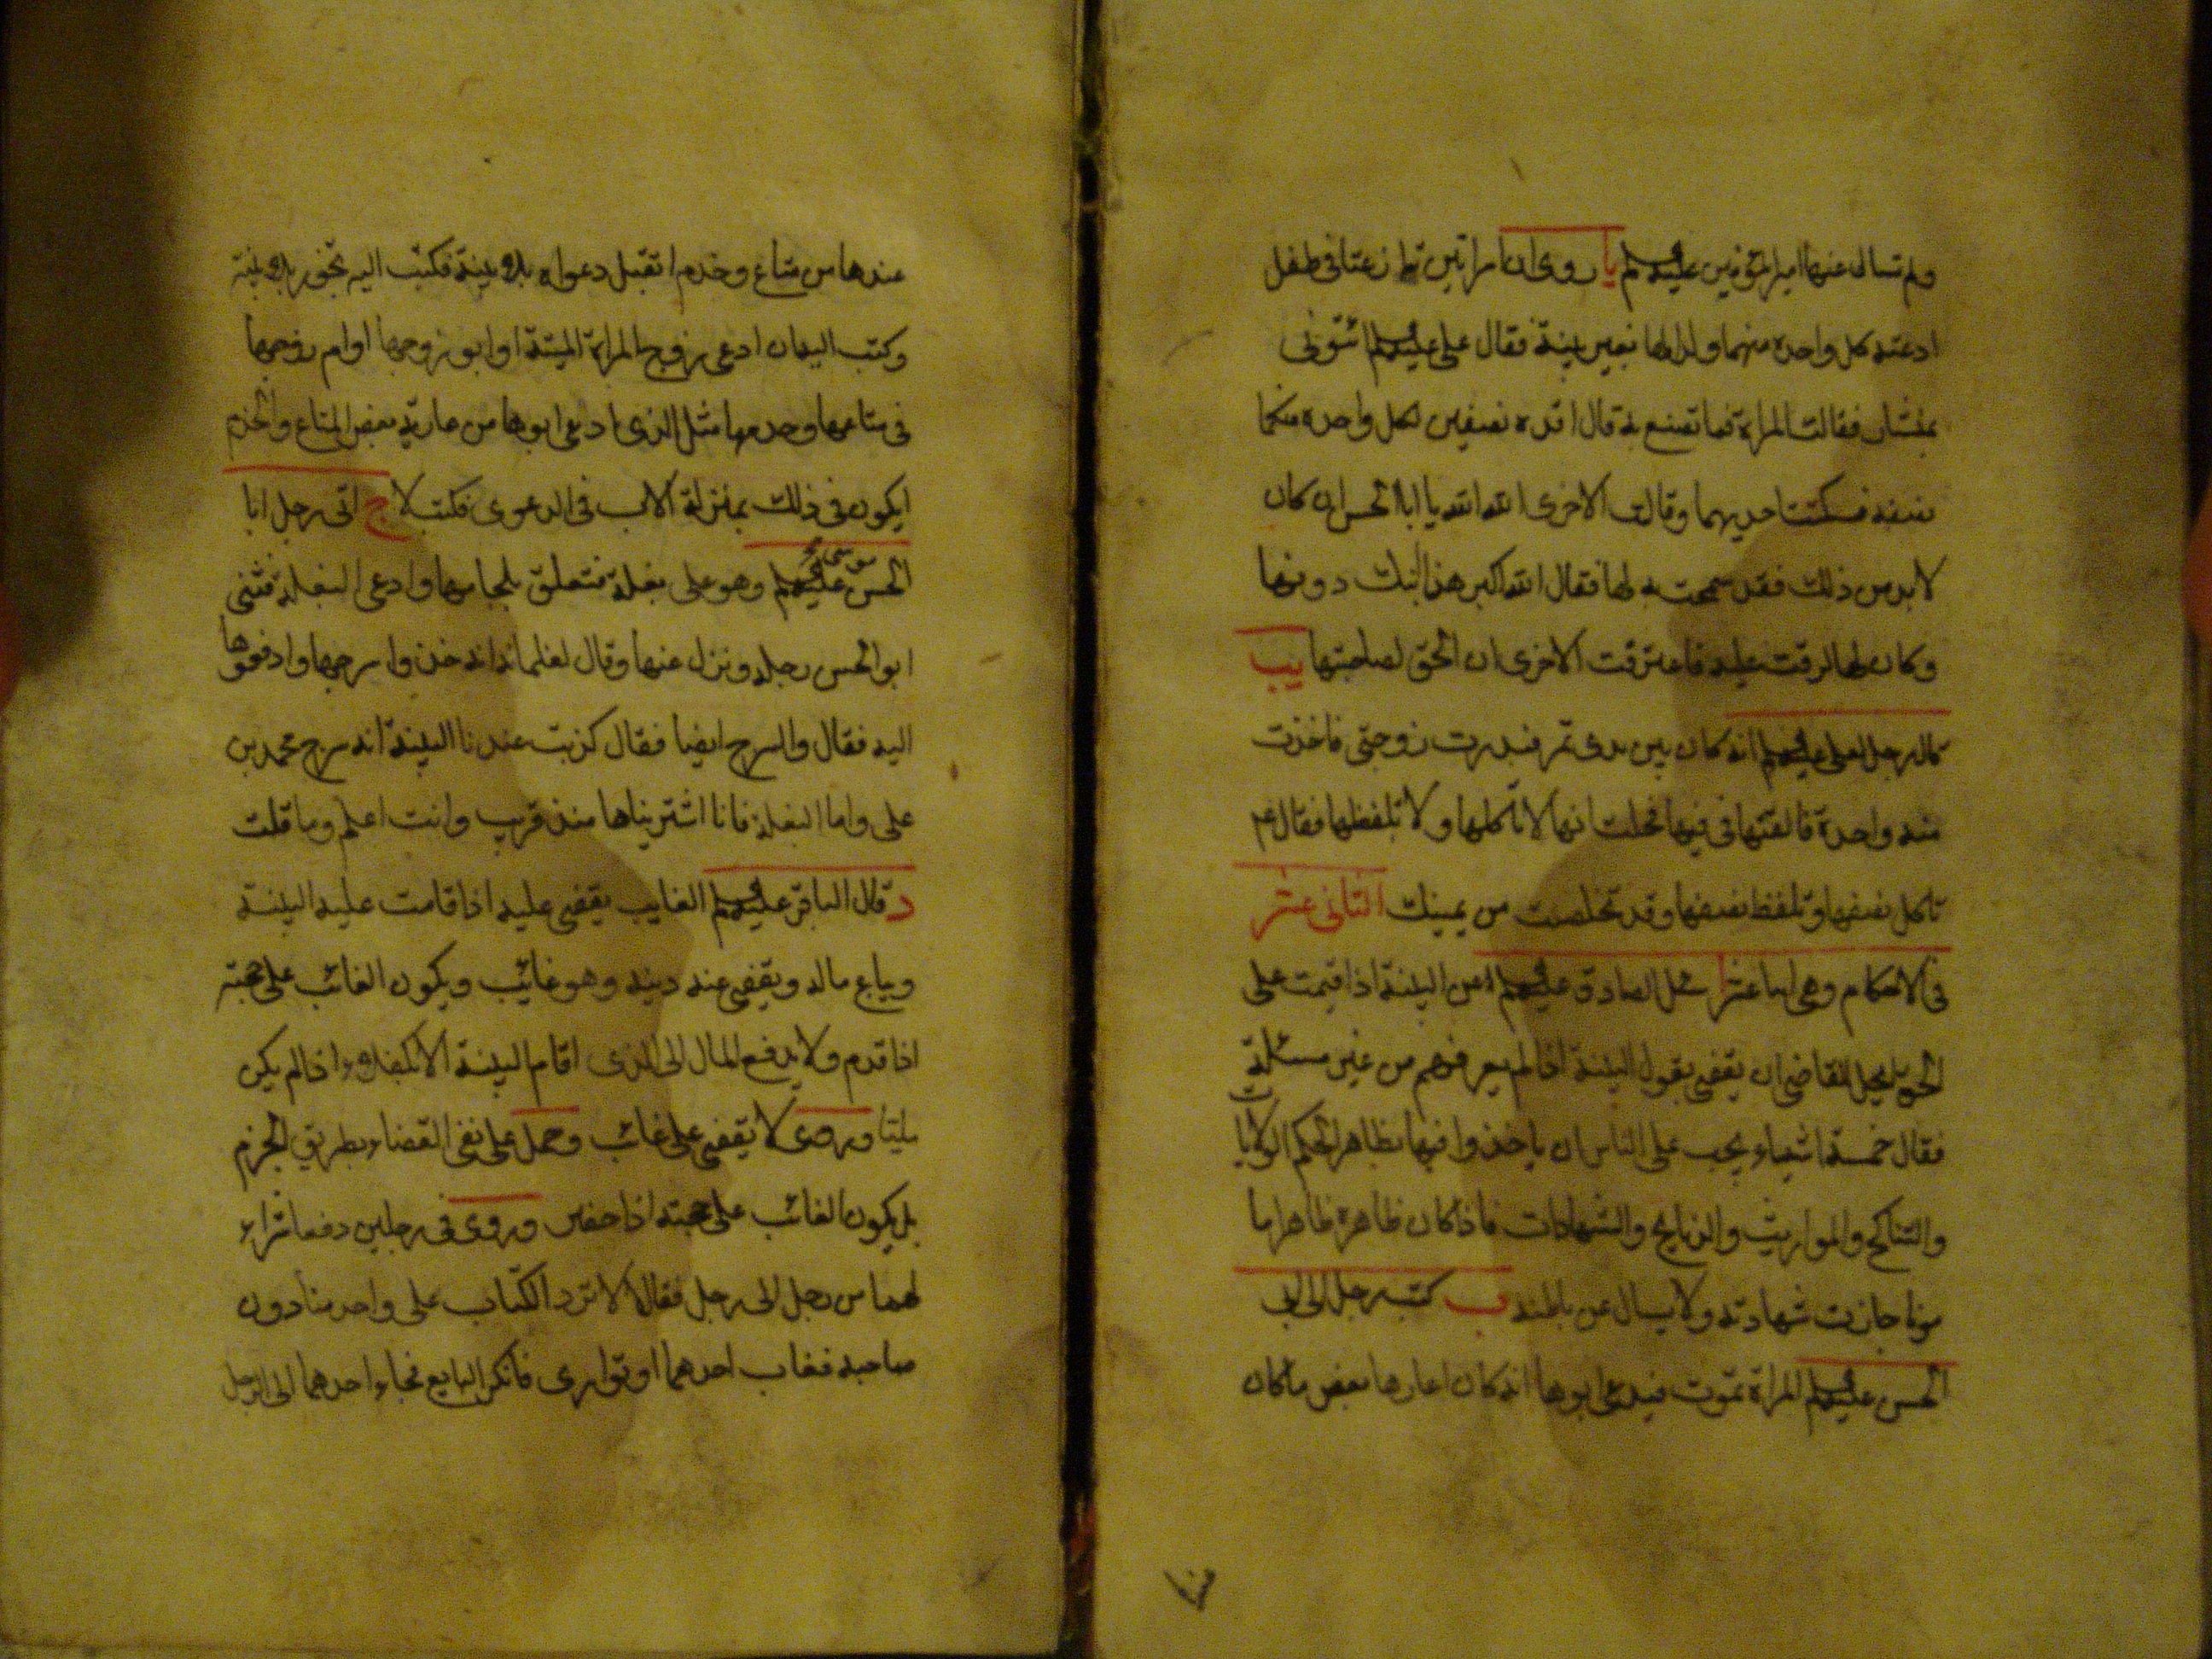 ولم تسال عنها امير المؤمنين عليه السلم يا روى ان امراتين تنازعتا فى طفل
ادعته كل واحدة منهما ولدا لها بغير بينة فقال على عليه السلم ائتونى
بمنشار فقالت المراة فما تصنع به قال اقده نصفين لكل واحدة منكما
نصفه فسكتت احديهما وقالت الاخرى الله الله يا ابا الحسن ان كان
لابد من ذلك فقد سمحت به لها فقال الله اكبر هذا ابنك دونها
وكان لها لرقت عليه فاعترفت الاخرى ان الحق لصاحبتها يب
قال رجل لعلى عليه السلم انه كان بين يدى تمر فبدرت زوجتى فاخذت
منه واحدة فالقتها فى فيها فحلفت انها لا تاكلها ولا تلفظها فقال عم
تاكل نصفها وتلفظ نصفها وقد تخلصت من يمينك الثانى عشر
فى الاحكام وهى اثنا عشر ا سئل الصادق عليه السلم عن البينة اذا اقيمت على
الحق ايحل للقاضى ان يقضى بقول البينة اذا لم يعرفهم من غير مسئلة
فقال خمسة اشياء يجب على الناس ان ياخذوا فيها بظاهر الحكم الولايات
والتناكح والمواريث والذبايح والشهادات فاذا كان ظاهره ظاهرا ما
مونا جازت شهادته ولا يسال عن باطنه ب كتب رجل الى ابى
الحسن عليه السلم المراة تموت فيدعى ابوها انه كان اعارها بعض ما كان
عندها من متاع وخدم اتقبل دعواه بلا بينة فكتب اليه تجوز بلا بينة
وكتب اليه ان ادعى زوج المراة الميتة او ابو زوجها او ام زوجها
فى متاعها وخدمها مثل الذى ادعى ابوها من عارية بعض المتاع والخدم
ايكون فى ذلك بمنزلة الاب فى الدعوى فكتب لا ج اتى رجل ابا
الحسن موسى عليه السلم وهو على بغلة فتعلق بلجامها وادعى البغلة فثنى
ابو الحسن رجله ونزل عنها وقال لغلمانه خذوا سرجها وادفعوها
اليه فقال والسرج ايضا فقال كذبت عندنا البينة انه سرج محمد بن
على واما البغلة فانا اشتريناها منذ قريب وانت اعلم وما قلت
د قال الباقر عليه السلم الغايب يقضى عليه اذا قامت عليه البينة
ويباع ماله ويقضى عنه دينه وهو غائب ويكون الغائب على حجته
اذا قدم ولا يدفع المال الى الذى اقام البينة الا بكفلاء اذا لم يكن
مليا وروى لا يقضى على غائب وحمل على نفى القضاء بطريق الجزم
بل يكون الغائب على حجته اذا حضر وروى فى رجلين دفعا شراء
لهما من رجل الى رجل فقالا لا ترد الكتاب على واحد منا دون
صاحبه فغاب احدهما او توارى فانكر البايع فجاء احدهما الى الرجل